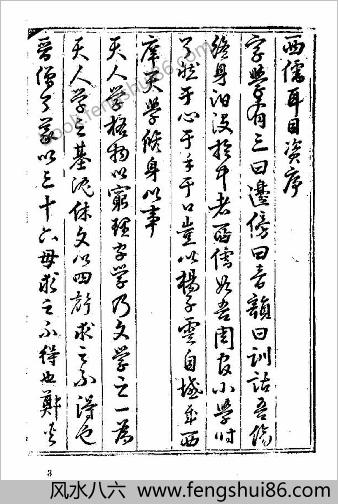 西儒耳目資序
字學有三曰邊傍曰音韻曰訓詁吾儕
終身汩沒於中老西儒如吾周官小學時
了然于心于手于口豈以楊子雲自城西
庠天學修身以事
天人學格物以窮理字學乃文學之一為
天人學之基沈休文以四聲求之不得也
晉僧了義以三十六母求之不得也鄭夾
3
风水八六 www.fengshui86.com